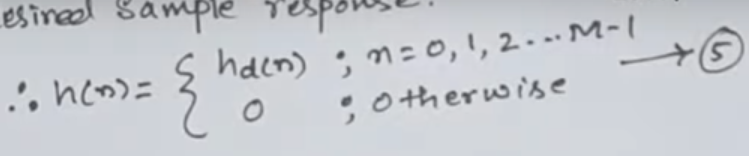 esired sample response.
∴ h(n) = { hd(n) ; n=0,1,2...M-1 → ⑤
0 ; otherwise